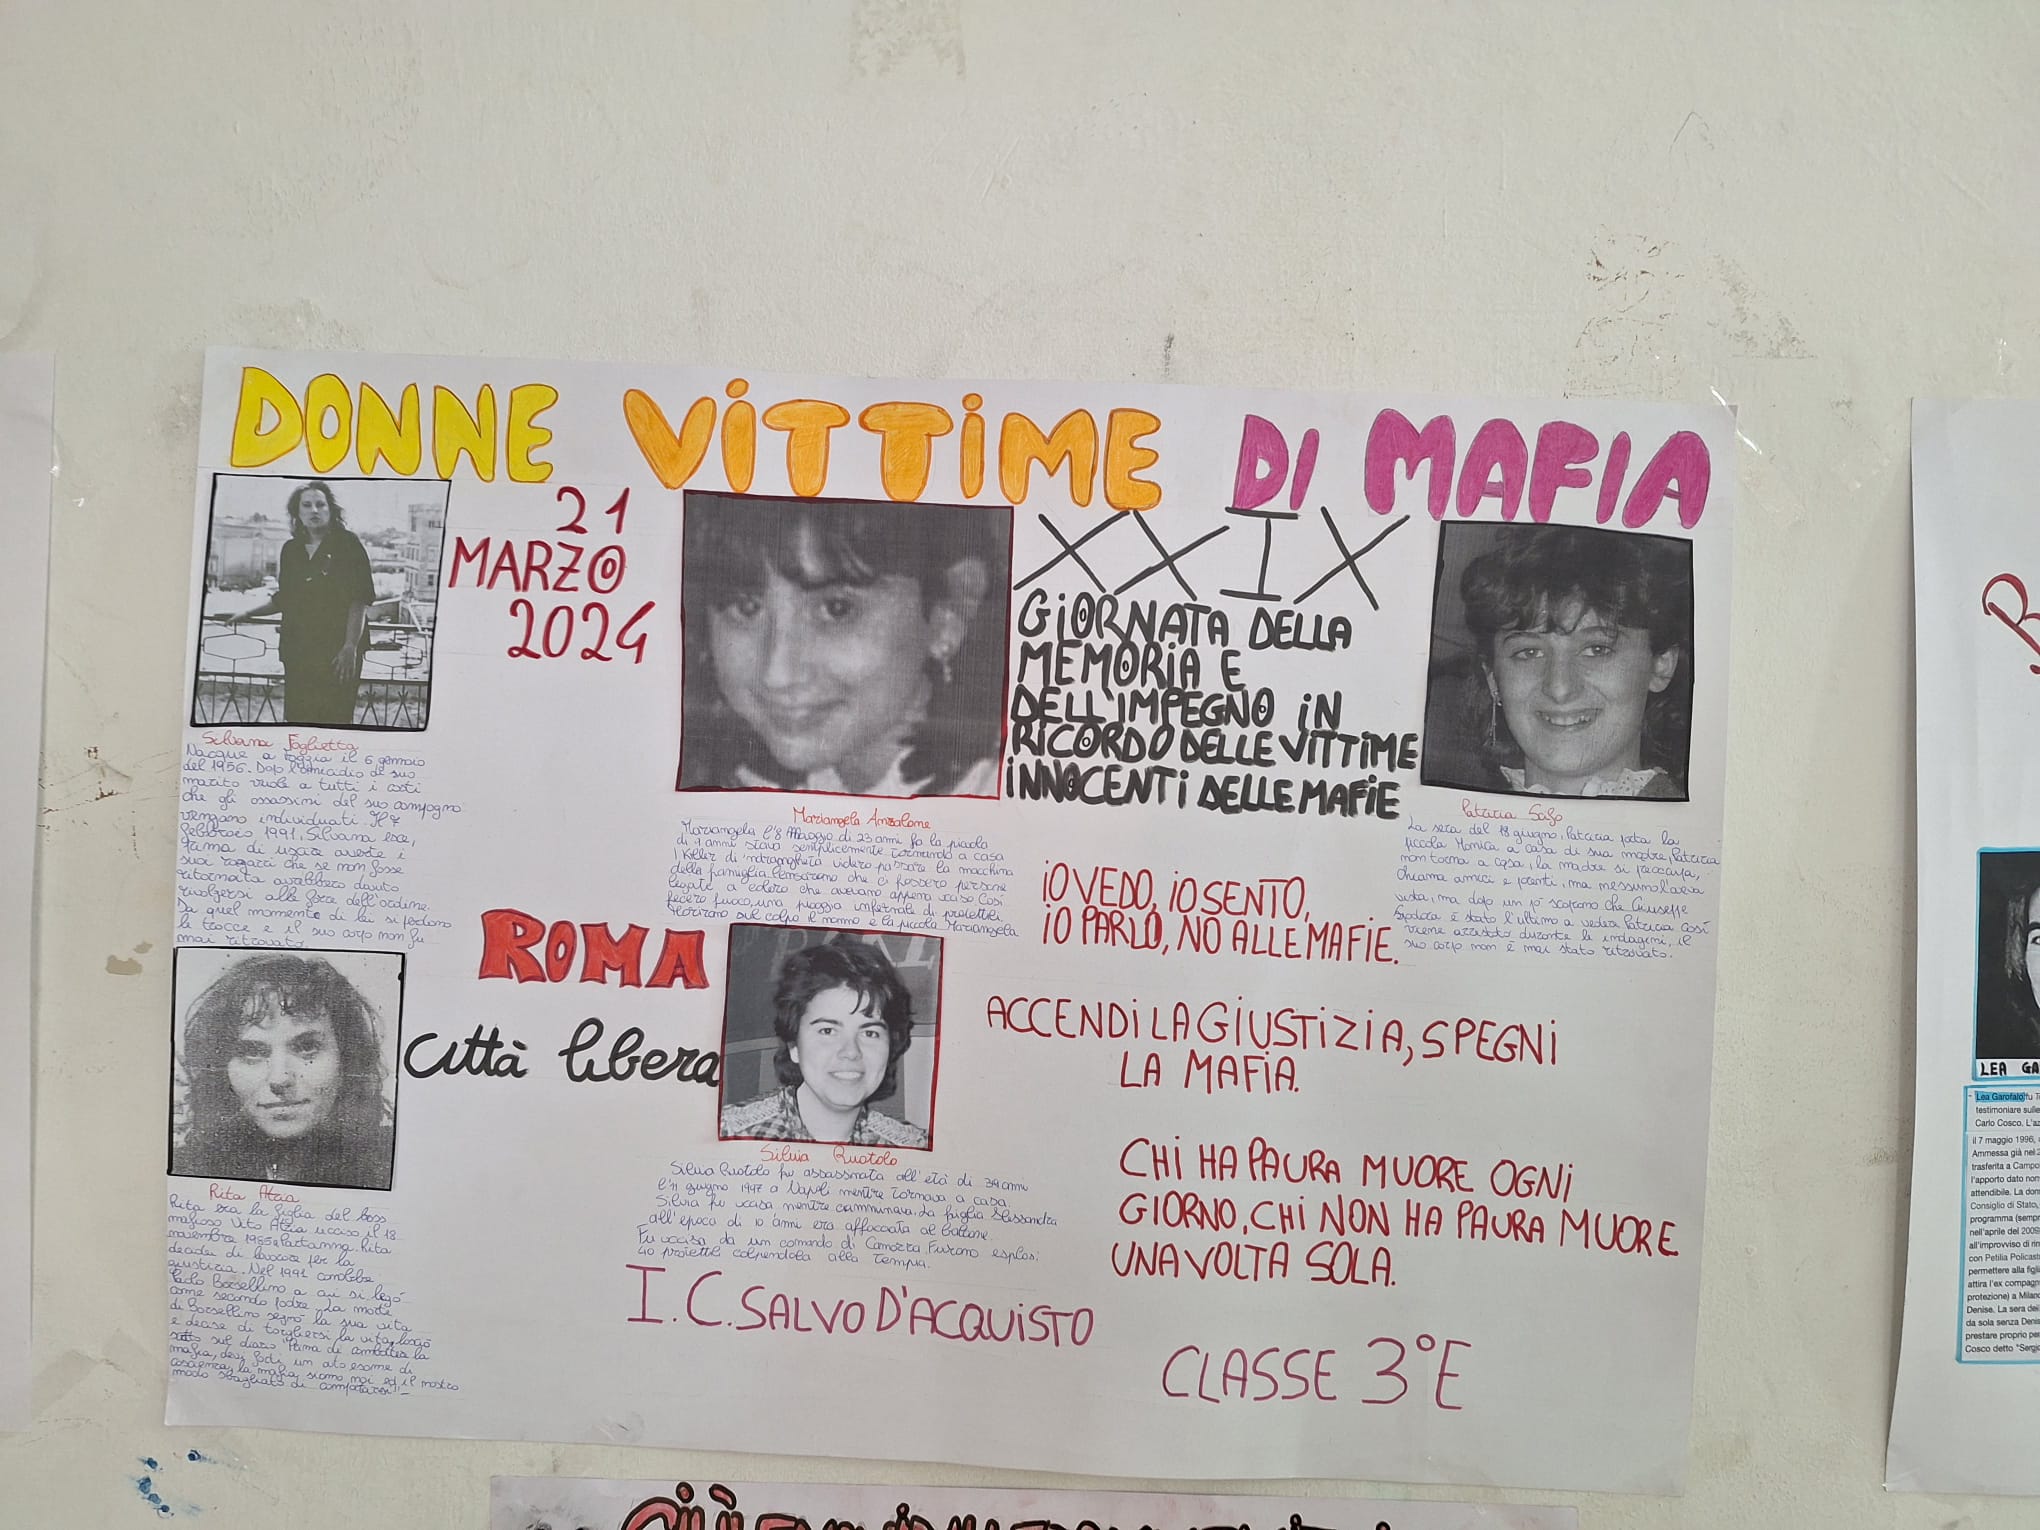 DONNE VITTIME DI MAFIA
21
MARZO
2024
XXIX
GIORNATA DELLA
MEMORIA E
DELL'IMPEGNO IN
RICORDO DELLE VITTIME
INNOCENTI DELLE MAFIE
Silvana Foglietta
Nacque a Foggia il 6 gennaio
del 1956. Dopo l'omicidio di suo
marito vuole a tutti i costi
che gli assassini del suo compagno
vengano individuati. Il 7
febbraio 1991, Silvana esce,
prima di uscire avverte i
suoi ragazzi che se non fosse
ritornata avrebbero dovuto
rivolgersi alle forze dell'ordine.
Da quel momento di lei si perdono
le tracce e il suo corpo non fu
mai ritrovato.
Mariangela Anzalone
Mariangela l'8 Maggio di 23 anni fa la piccola
di 9 anni stava semplicemente tornando a casa
I Killer di 'ndrangheta videro passare la macchina
della famiglia. Pensarono che ci fossero persone
legate a coloro che avevano appena ucciso. Così
fecero fuoco, una pioggia infernale di proiettili.
Morirono sul colpo il nonno e la piccola Mariangela
Patrizia Scifo
La sera del 18 giugno, Patrizia porta la
piccola Monica a casa di sua madre, Patrizia
non torna a casa, la madre si preoccupa,
chiama amici e parenti, ma nessuno l'aveva
vista, ma dopo un po' scoprono che Giuseppe
è stato l'ultimo a vedere Patrizia così
viene arrestato durante le indagini, il
suo corpo non è mai stato ritrovato.
IO VEDO, IO SENTO,
IO PARLO, NO ALLE MAFIE.
ROMA
città libera
ACCENDI LA GIUSTIZIA, SPEGNI
LA MAFIA.
Rita Atria
Rita era la figlia del boss
mafioso Vito Atria ucciso il 18
novembre 1985 a Partanna. Rita
decide di lavorare per la
giustizia. Nel 1991 conobbe
Paolo Borsellino a cui si legò
come secondo padre. La morte
di Borsellino segnò la sua vita
e decise di togliersi la vita, lasciò
scritto sul diario "Prima di combattere la
mafia, devi farti un auto esame di
coscienza, la mafia siamo noi ed il nostro
modo sbagliato di comportarsi"
Silvia Ruotolo
Silvia Ruotolo fu assassinata all'età di 39 anni
l'11 giugno 1997 a Napoli mentre tornava a casa.
Silvia fu uccisa mentre camminava. La figlia Alessandra
all'epoca di 10 anni era affacciata al balcone.
Fu uccisa da un comando di Camorra. Furono esplosi
40 proiettili colpendola alla tempia.
CHI HA PAURA MUORE OGNI
GIORNO, CHI NON HA PAURA MUORE
UNA VOLTA SOLA.
I.C. SALVO D'ACQUISTO
CLASSE 3°E
LEA GA
- Lea Garofalo fu T
testimoniare sulle
Carlo Cosco. L'az
il 7 maggio 1996,
Ammessa già nel 2
trasferita a Campo
l'apporto dato non
attendibile. La don
Consiglio di Stato,
programma (semp
nell'aprile del 2009
all'improvviso di rin
con Petilia Policast
permettere alla figli
attira l'ex compagn
protezione) a Milano
Denise. La sera del
da sola senza Denis
prestare proprio per
Cosco detto "Sergio